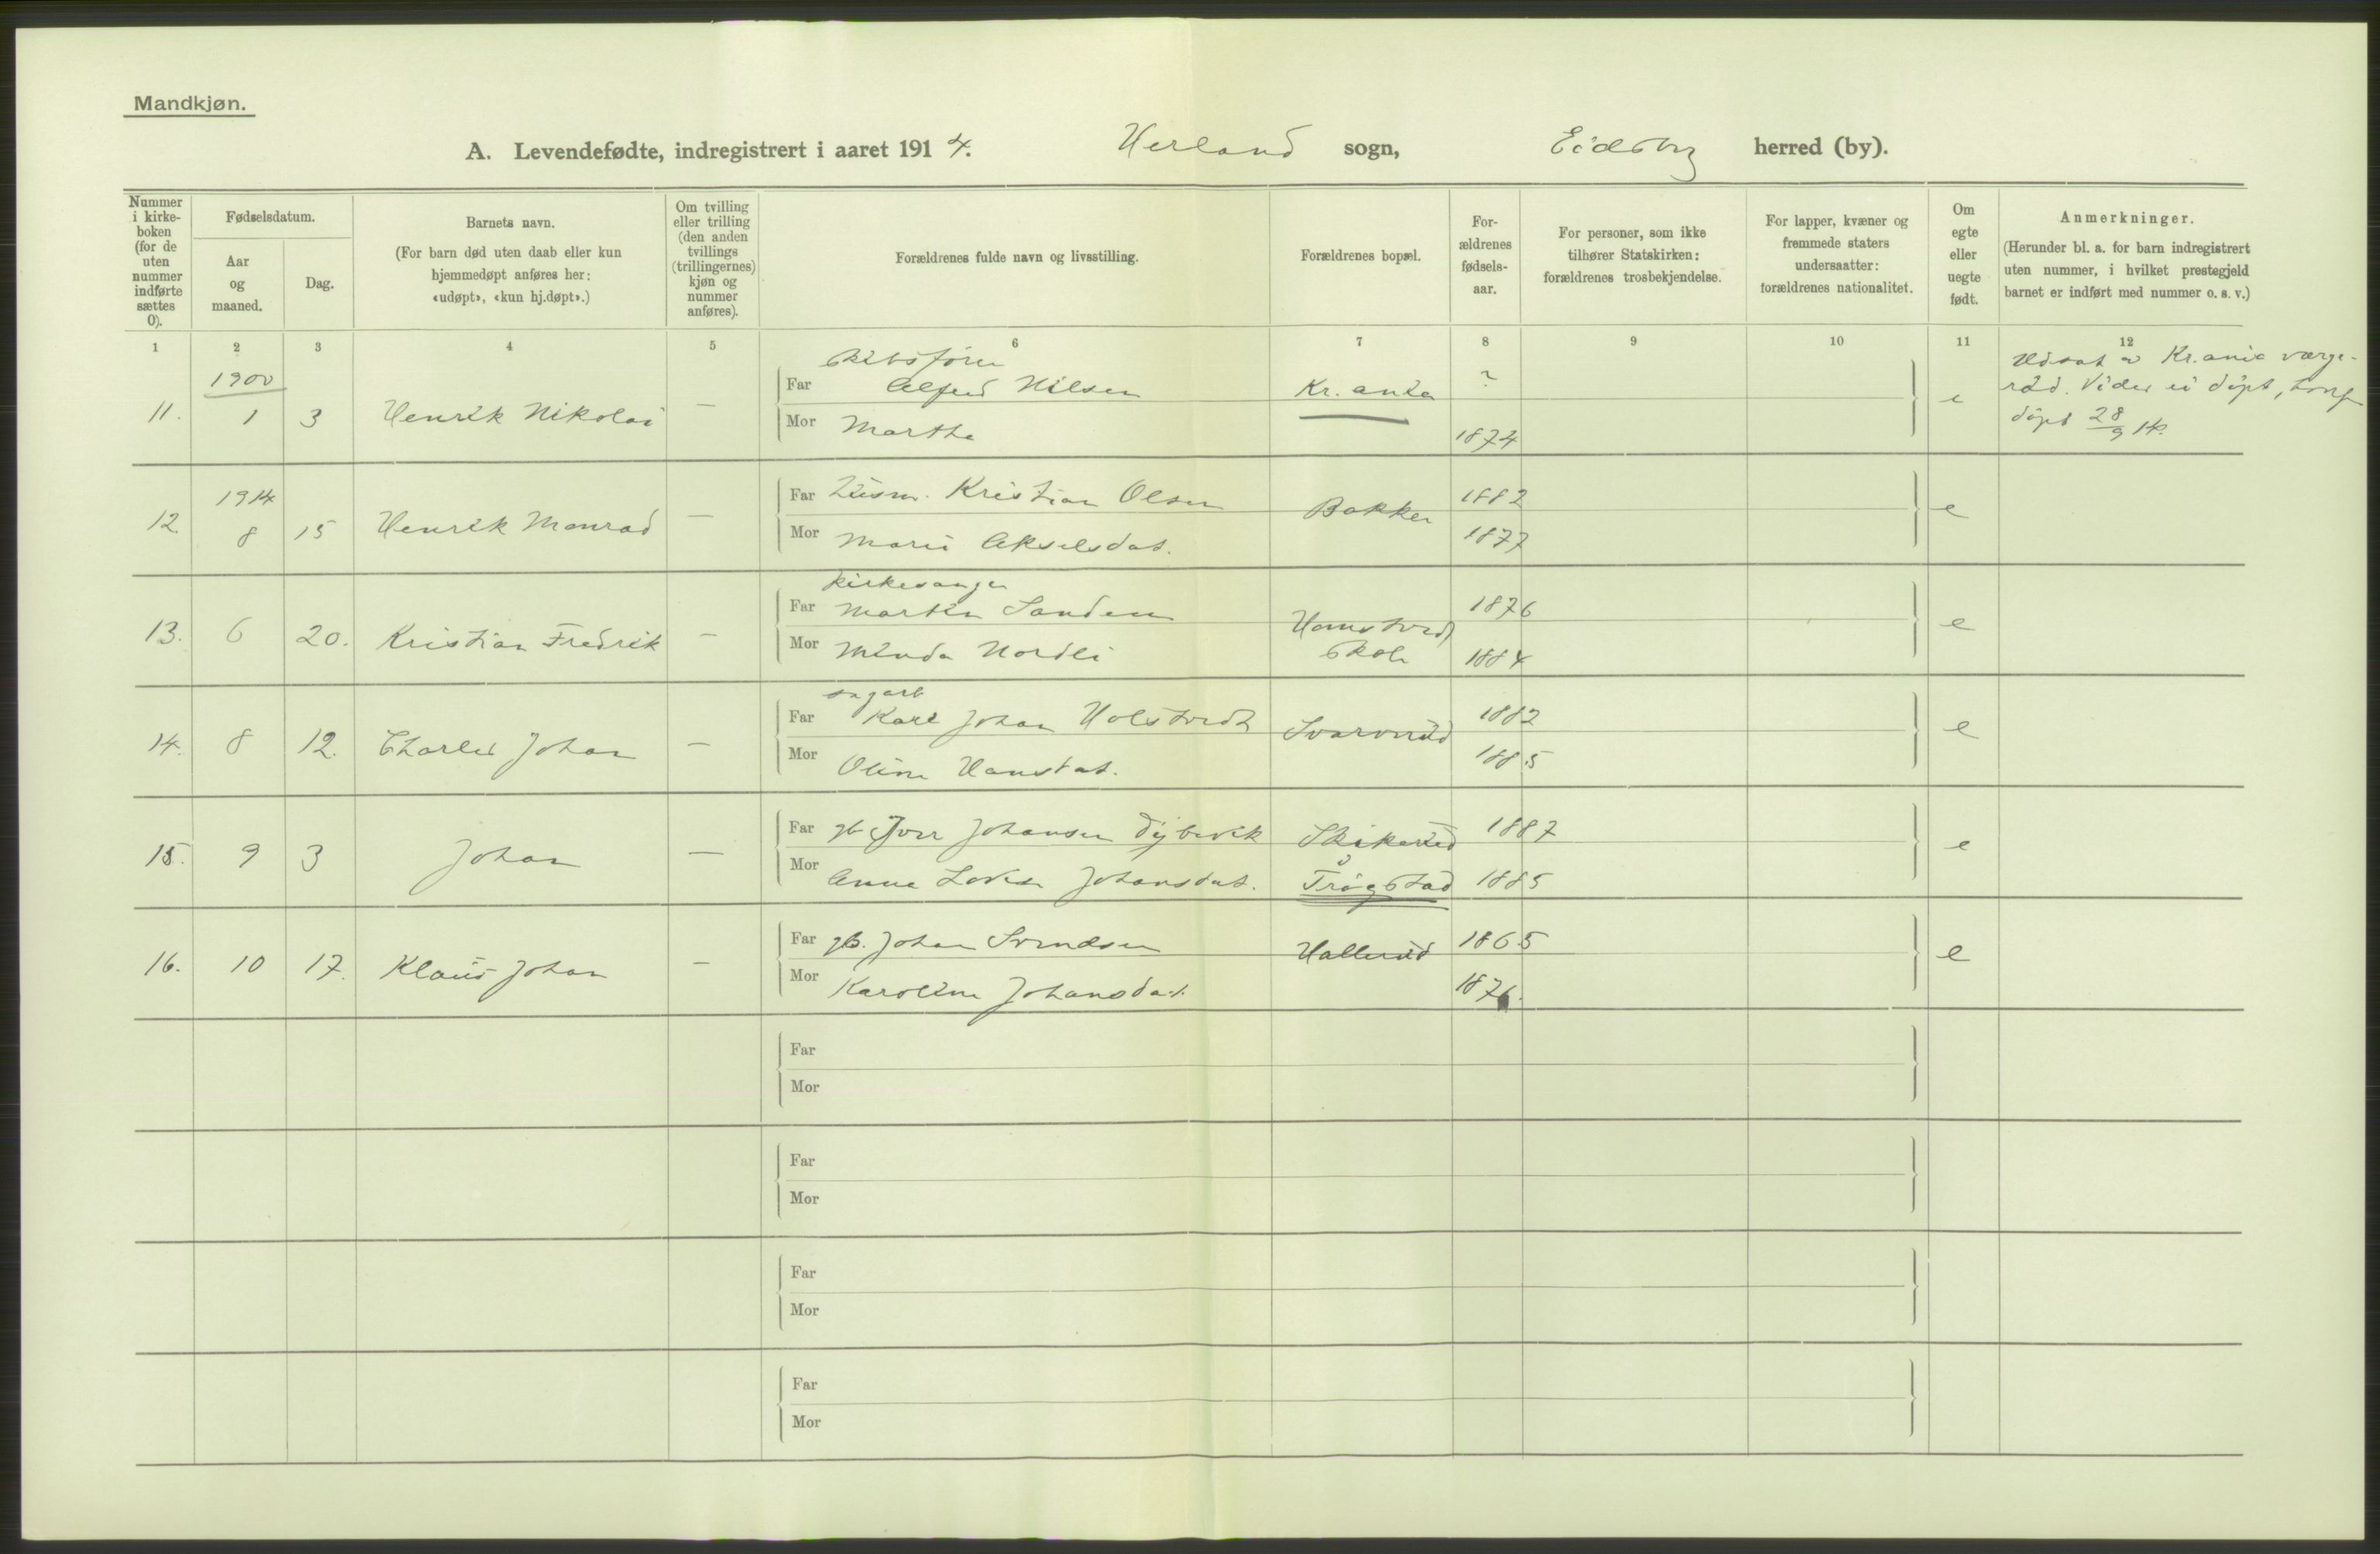 Mandkjøn.
A. Levendefødte, indregistrert i aaret 1914. Herland sogn, Eidsberg herred (by).
Nummer i kirke-boken (for de uten nummer indførte sættes 0).
Fødselsdatum.
Aar og maaned.
Dag.
Barnets navn.
(For barn død uten daab eller kun hjemmedøpt anføres her: «udøpt», «kun hj.døpt».)
Om tvilling eller trilling (den anden tvillings (trillingernes) kjøn og nummer anføres).
Forældrenes fulde navn og livsstilling.
Forældrenes bopæl.
For-ældrenes fødsels-aar.
For personer, som ikke tilhører Statskirken: forældrenes trosbekjendelse.
For lapper, kvæner og fremmede staters undersaatter: forældrenes nationalitet.
Om egte eller uegte født.
Anmerkninger.
(Herunder bl. a. for barn indregistrert uten nummer, i hvilket prestegjeld barnet er indført med nummer o. s. v.)
1 2 3 4 5 6 7 8 9 10 11 12
1900
11. 1 3 Henrik Nikolai —
Skibsfører
Far Alfred Nilsen Kr.ania ?
Mor Marthe 1874
e
Udsat av Kr.ania værge-
råd. Vides ei döpt,
döpt 28/9 14.
1914
12 8 15 Henrik Monrad —
Far Husm. Kristian Olsen Bakken 1882
Mor Marie Akselsdat. 1877
e
13. 6 20. Kristian Fredrik —
Kirkesanger
Far Martin Sandem 1876
Mor Minda Nordli Skole 1884
e
14. 8 12. Charles Johan —
sagarb
Far Karl Johan Holstvedt 1882
Mor Oline Hansdat. 1885
e
15. 9 3 Johan —
Far gb Johansen Dybevik 1887
Mor Anne Johansdat. Trögstad 1885
e
16. 10 17. Klaus Johan —
Far gb. Johan Svendsen Hallerud 1865
Mor Karoline Johansdat. 1876.
e
Far
Mor
Far
Mor
Far
Mor
Far
Mor